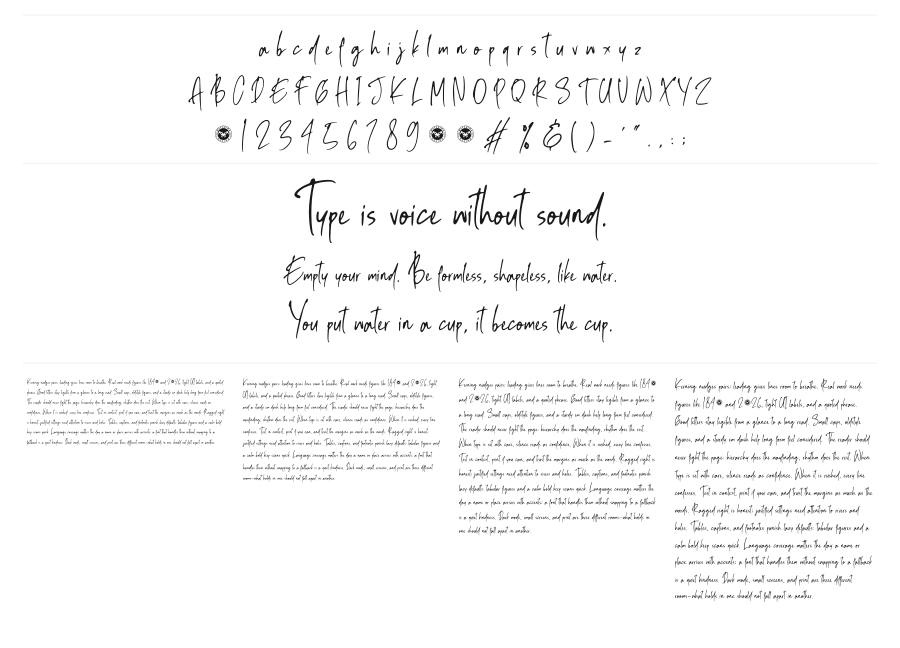 a b c d e f g h i j k l m n o p q r s t u v w x y z
A B C D E F G H I J K L M N O P Q R S T U V W X Y Z
1 2 3 4 5 6 7 8 9 # % & ( ) - ' " . , : ;
Type is voice without sound.
Empty your mind. Be formless, shapeless, like water.
You put water in a cup, it becomes the cup.
Kerning nudges pairs; leading gives lines room to breathe. Real work needs figures like 184 and 2 26, tight UI labels, and a quoted
phrase. Good letters stay legible from a glance to a long read. Small caps, oldstyle figures, and a sturdy en dash help long form feel considered.
The reader should never fight the page: hierarchy does the wayfinding, rhythm does the rest. When type is set with care, silence reads as
confidence. When it is rushed, every line confesses. Test in context, print if you can, and trust the margins as much as the words. Ragged right
is honest; justified settings need attention to rivers and holes. Tables, captions, and footnotes punish lazy defaults: tabular figures and a calm bold
keep scans quick. Language coverage matters the day a name or place arrives with accents: a font that handles them without swapping to a
fallback is a quiet kindness. Dark mode, small screens, and print are three different rooms—what holds in one should not fall apart in another.
Kerning nudges pairs; leading gives lines room to breathe. Real work needs figures like 184 and 2 26, tight
UI labels, and a quoted phrase. Good letters stay legible from a glance to a long read. Small caps, oldstyle figures,
and a sturdy en dash help long form feel considered. The reader should never fight the page: hierarchy does the
wayfinding, rhythm does the rest. When type is set with care, silence reads as confidence. When it is rushed, every line
confesses. Test in context, print if you can, and trust the margins as much as the words. Ragged right is honest;
justified settings need attention to rivers and holes. Tables, captions, and footnotes punish lazy defaults: tabular figures and
a calm bold keep scans quick. Language coverage matters the day a name or place arrives with accents: a font that
handles them without swapping to a fallback is a quiet kindness. Dark mode, small screens, and print are three different
rooms—what holds in one should not fall apart in another.
Kerning nudges pairs; leading gives lines room to breathe. Real work needs figures like 184
and 2 26, tight UI labels, and a quoted phrase. Good letters stay legible from a glance to
a long read. Small caps, oldstyle figures, and a sturdy en dash help long form feel considered.
The reader should never fight the page: hierarchy does the wayfinding, rhythm does the rest.
When type is set with care, silence reads as confidence. When it is rushed, every line confesses.
Test in context, print if you can, and trust the margins as much as the words. Ragged right is
honest; justified settings need attention to rivers and holes. Tables, captions, and footnotes punish
lazy defaults: tabular figures and a calm bold keep scans quick. Language coverage matters the
day a name or place arrives with accents: a font that handles them without swapping to a fallback
is a quiet kindness. Dark mode, small screens, and print are three different rooms—what holds in
one should not fall apart in another.
Kerning nudges pairs; leading gives lines room to breathe. Real work needs
figures like 184 and 2 26, tight UI labels, and a quoted phrase.
Good letters stay legible from a glance to a long read. Small caps, oldstyle
figures, and a sturdy en dash help long form feel considered. The reader should
never fight the page: hierarchy does the wayfinding, rhythm does the rest. When
type is set with care, silence reads as confidence. When it is rushed, every line
confesses. Test in context, print if you can, and trust the margins as much as the
words. Ragged right is honest; justified settings need attention to rivers and
holes. Tables, captions, and footnotes punish lazy defaults: tabular figures and a
calm bold keep scans quick. Language coverage matters the day a name or
place arrives with accents: a font that handles them without swapping to a fallback
is a quiet kindness. Dark mode, small screens, and print are three different
rooms—what holds in one should not fall apart in another.